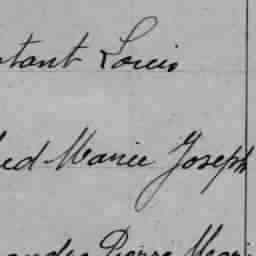 tant Louis
ed Marie Joseph
Pierre Mari